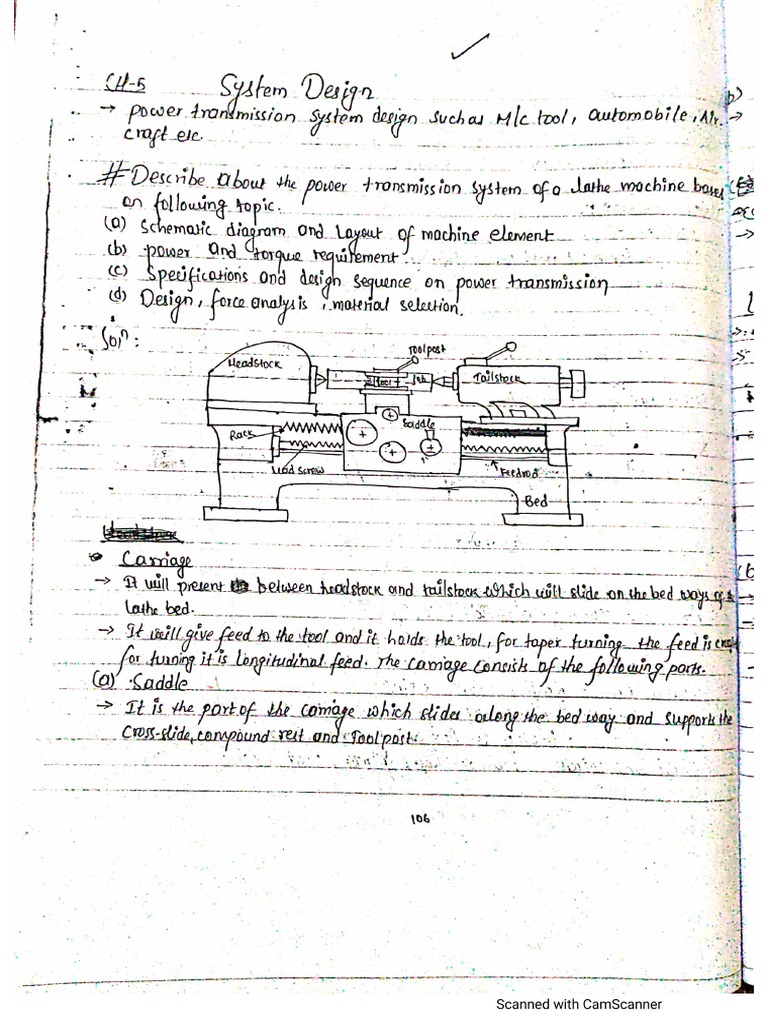 CH-5 System Design
→ power transmission system design such as M/c tool, automobile, Air
craft etc.
# Describe about the power transmission system of a lathe machine bases
on following topic.
(a) Schematic diagram and Layout of machine element
(b) power and torque requirement
(c) Specifications and design sequence on power transmission
(d) Design, force analysis, material selection.
Solⁿ:
Toolpost
Headstock
Tool
Job
Tailstock
Saddle
Rack
Lead screw
Feedrod
Bed
• Carriage
→ It will present between headstock and tailstock which will slide on the bed ways of
lathe bed.
→ It will give feed to the tool and it holds the tool, for taper turning the feed is
for turning it is longitudinal feed. The carriage consists of the following parts.
(a) Saddle
→ It is the part of the carriage which slides along the bed way and supports the
cross-slide, compound rest and Toolpost.
106
Scanned with CamScanner